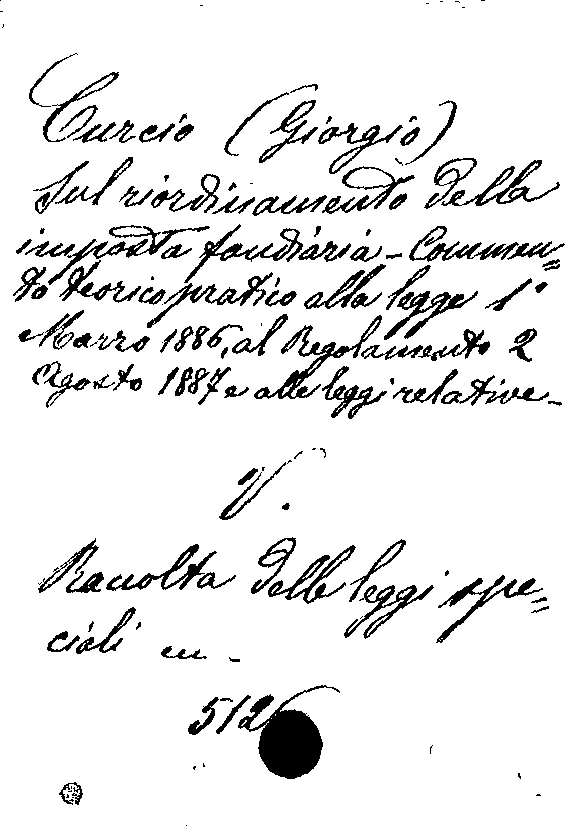 Curcio (Giorgio)
Sul riordinamento della
imposta fondiaria - Commen=
to teorico pratico alla legge 1°
Marzo 1886, al Regolamento 2
Agosto 1887 e alle leggi relative -
V.
Raccolta delle leggi spe=
ciali
5126